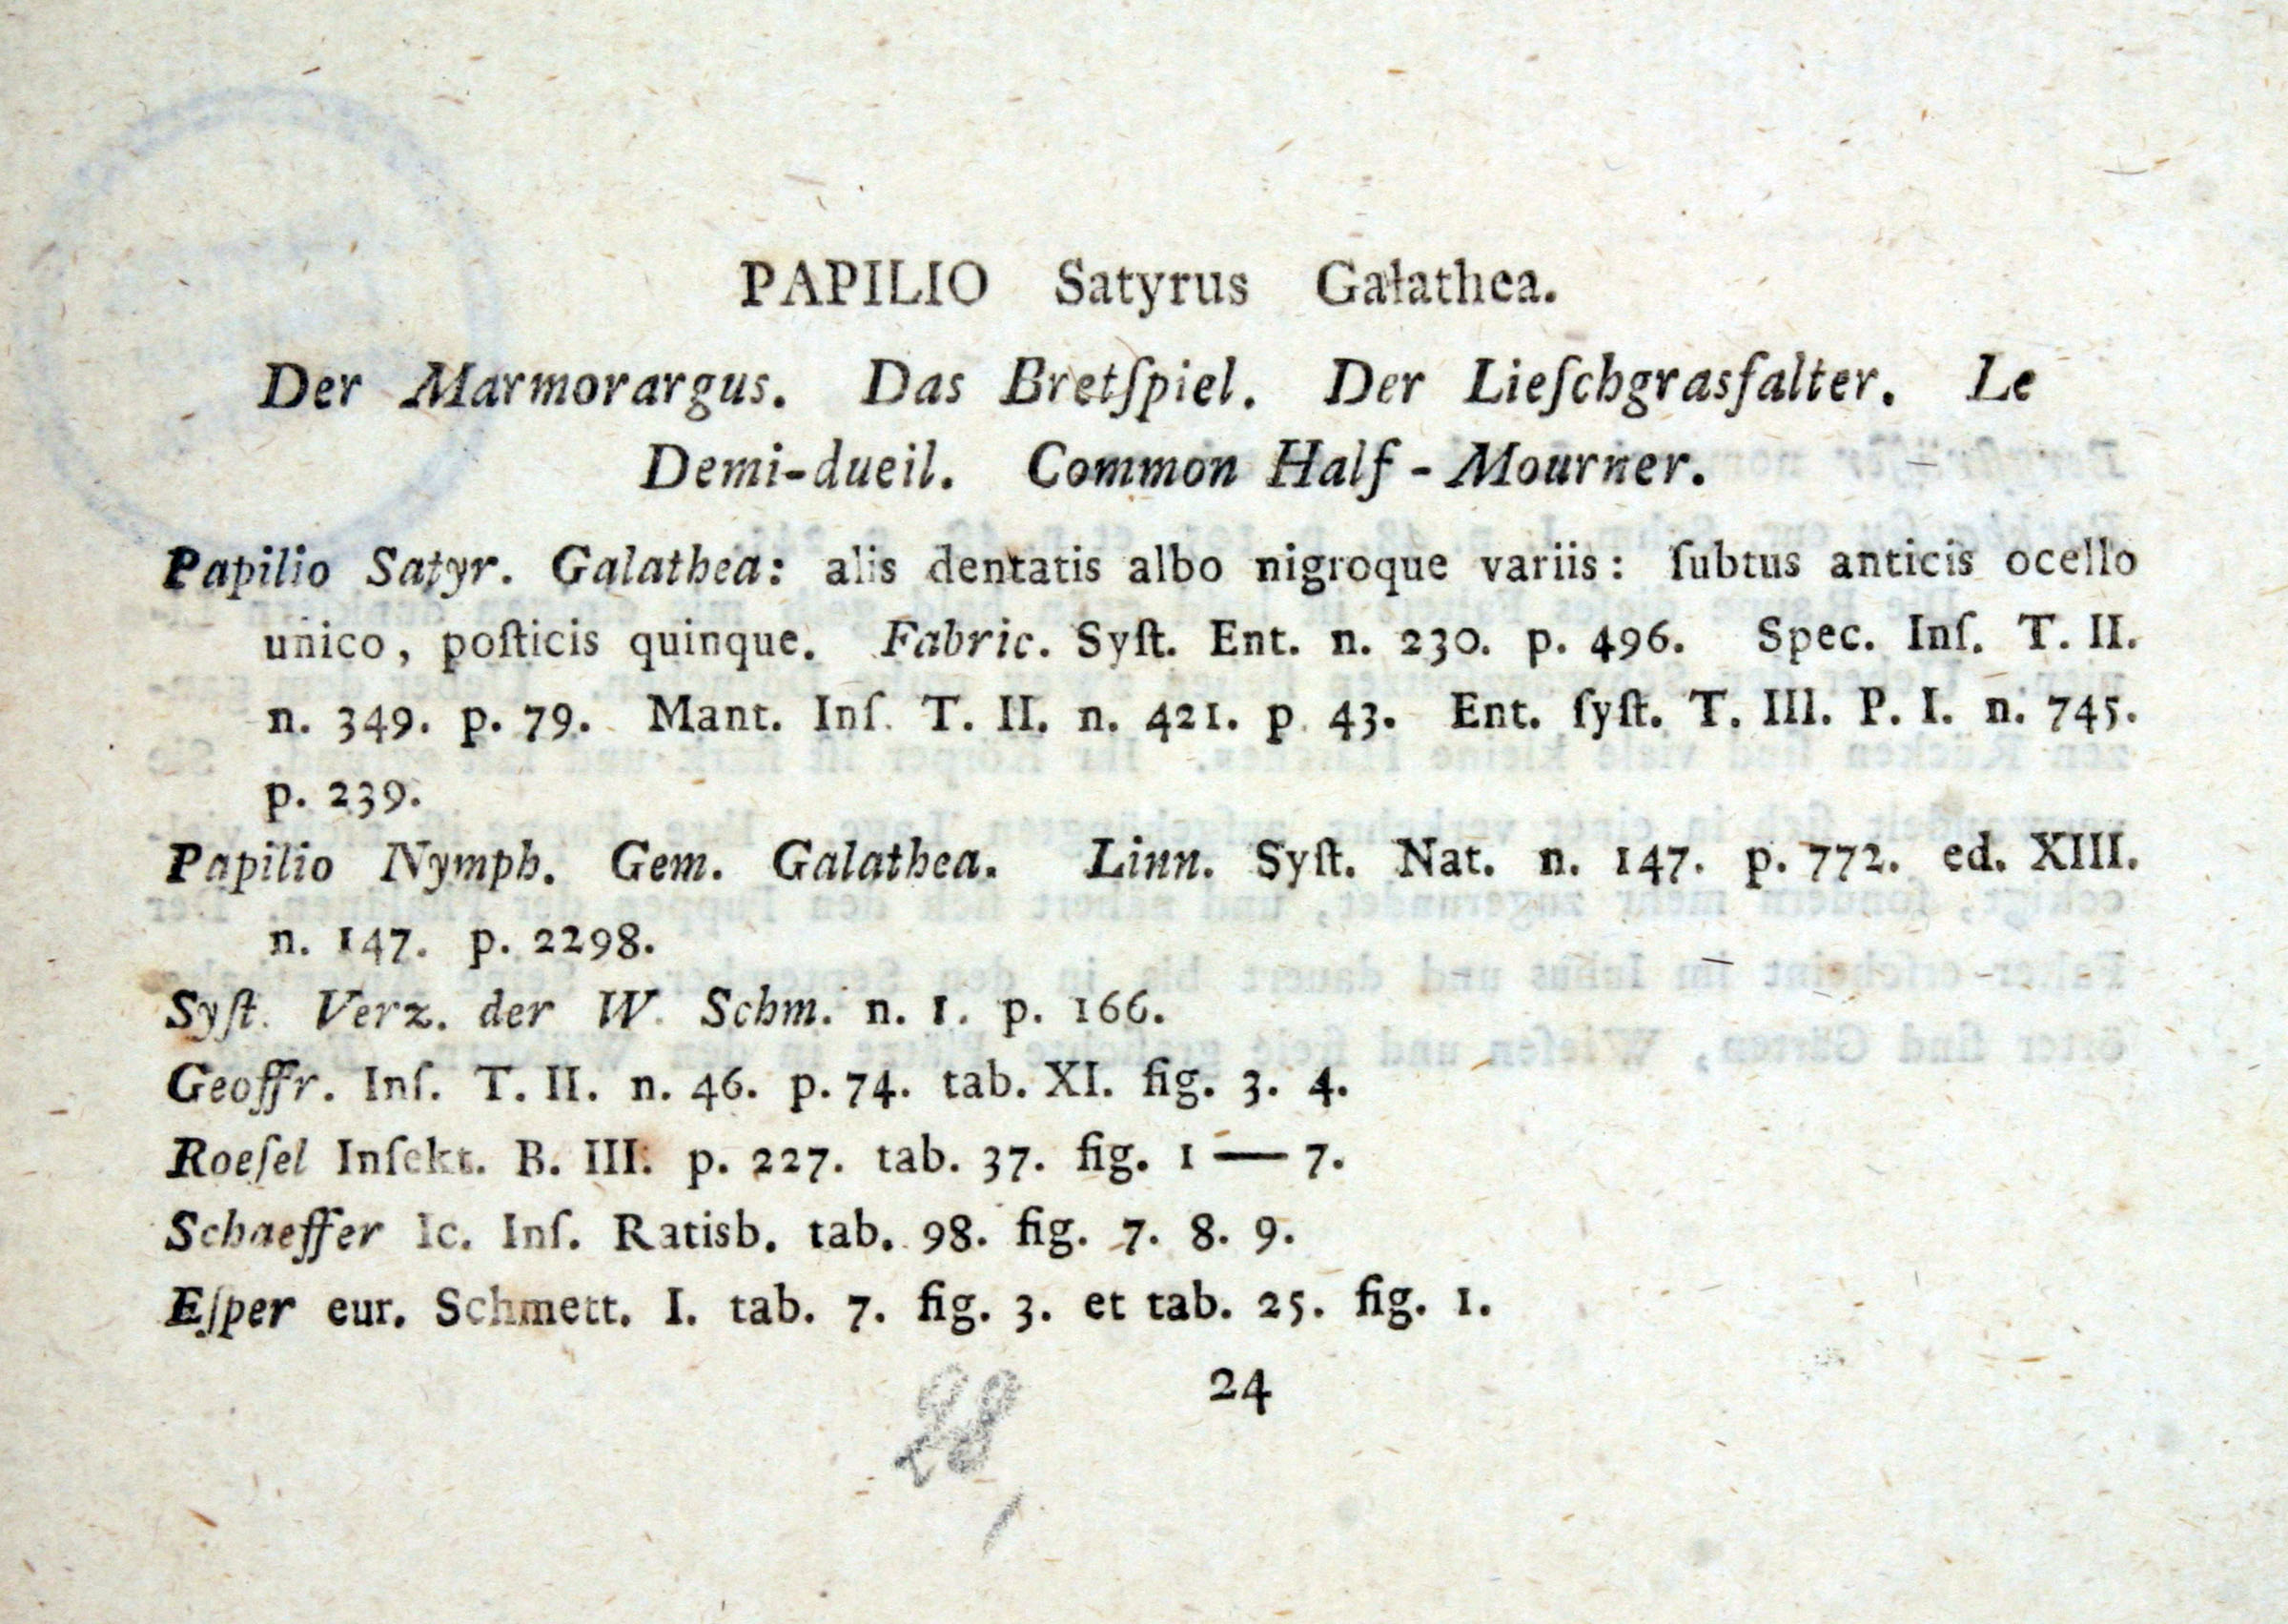 PAPILIO Satyrus Galathea.
Der Marmorargus. Das Bretſpiel. Der Lieſchgrasfalter. Le
Demi-dueil. Common Half-Mourner.
Papilio Satyr. Galathea: alis dentatis albo nigroque variis: ſubtus anticis ocello
unico, poſticis quinque. Fabric. Syſt. Ent. n. 230. p. 496. Spec. Inſ. T. II.
n. 349. p. 79. Mant. Inſ. T. II. n. 421. p. 43. Ent. ſyſt. T. III. P. I. n. 745.
p. 239.
Papilio Nymph. Gem. Galathea. Linn. Syſt. Nat. n. 147. p. 772. ed. XIII.
n. 147. p. 2298.
Syſt. Verz. der W. Schm. n. 1. p. 166.
Geoffr. Inſ. T. II. n. 46. p. 74. tab. XI. fig. 3. 4.
Roeſel Inſekt. B. III. p. 227. tab. 37. fig. 1 — 7.
Schaeffer Ic. Inſ. Ratisb. tab. 98. fig. 7. 8. 9.
Eſper eur. Schmett. I. tab. 7. fig. 3. et tab. 25. fig. 1.
24
28